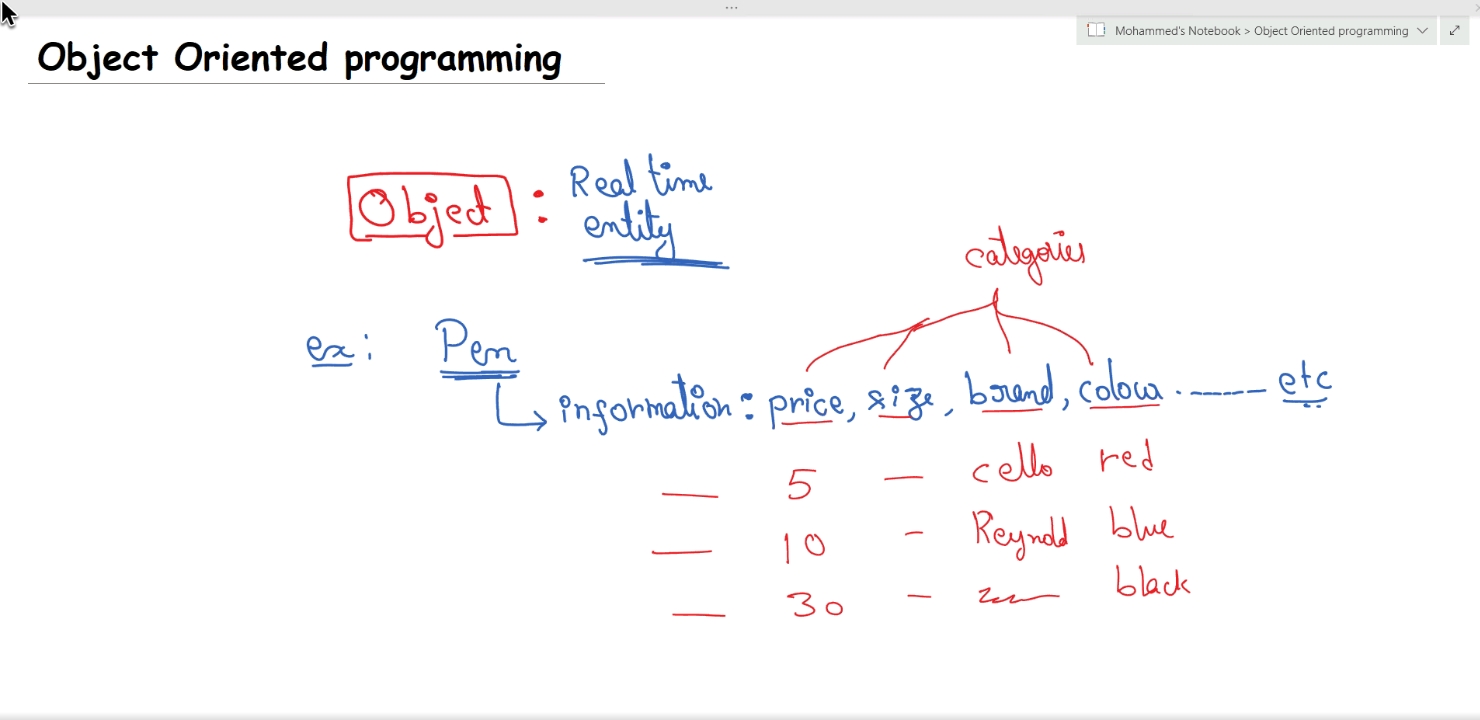 Mohammed's Notebook > Object Oriented programming
Object Oriented programming
Object : Real time
entity
categories
ex: Pen
information: price, size, brand, colour ...... etc
— 5 — cello red
— 10 - Reynold blue
— 30 - black